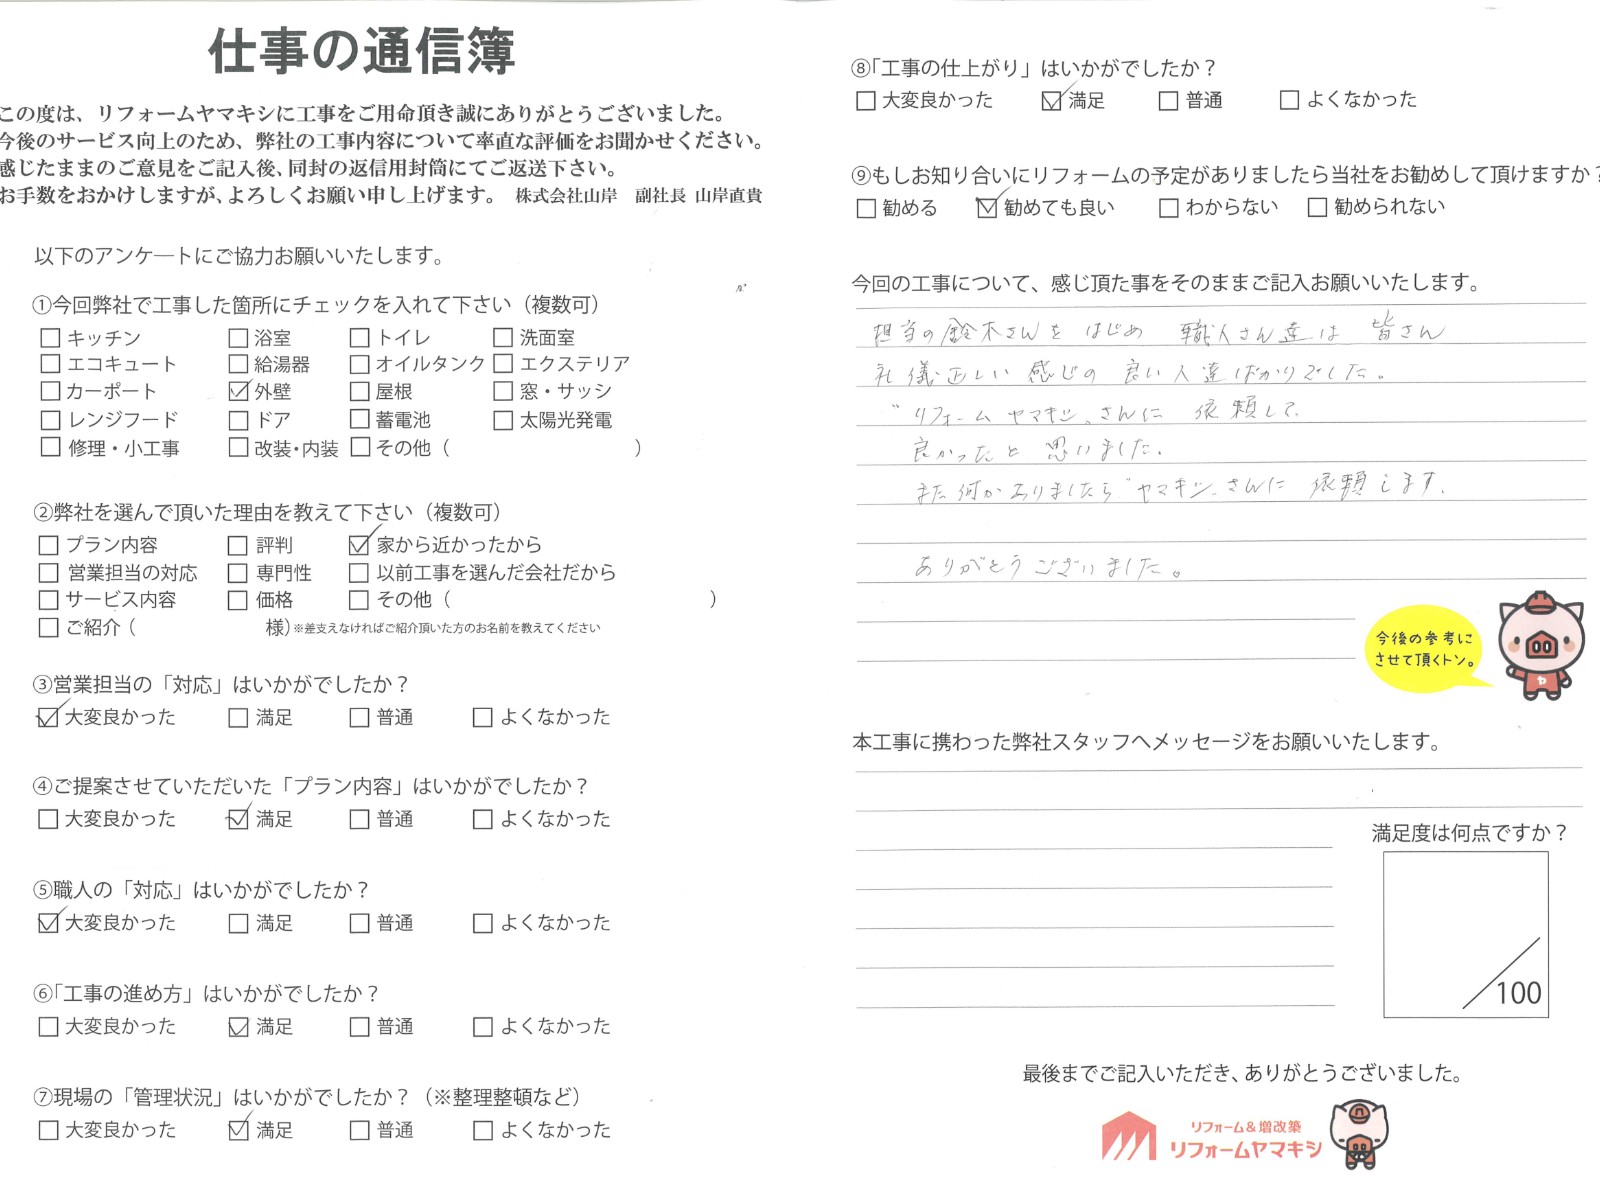 仕事の通信簿
この度は、リフォームヤマキシに工事をご用命頂き誠にありがとうございました。
今後のサービス向上のため、弊社の工事内容について率直な評価をお聞かせください。
感じたままのご意見をご記入後、同封の返信用封筒にてご返送下さい。
お手数をおかけしますが、よろしくお願い申し上げます。 株式会社山岸 副社長 山岸直貴
以下のアンケートにご協力お願いいたします。
①今回弊社で工事した箇所にチェックを入れて下さい（複数可）
□キッチン □浴室 □トイレ □洗面室
□エコキュート □給湯器 □オイルタンク □エクステリア
□カーポート ☑外壁 □屋根 □窓・サッシ
□レンジフード □ドア □蓄電池 □太陽光発電
□修理・小工事 □改装・内装 □その他（ ）
②弊社を選んで頂いた理由を教えて下さい（複数可）
□プラン内容 □評判 ☑家から近かったから
□営業担当の対応 □専門性 □以前工事を選んだ会社だから
□サービス内容 □価格 □その他（ ）
□ご紹介（ 様）※差支えなければご紹介頂いた方のお名前を教えてください
③営業担当の「対応」はいかがでしたか？
☑大変良かった □満足 □普通 □よくなかった
④ご提案させていただいた「プラン内容」はいかがでしたか？
□大変良かった ☑満足 □普通 □よくなかった
⑤職人の「対応」はいかがでしたか？
☑大変良かった □満足 □普通 □よくなかった
⑥「工事の進め方」はいかがでしたか？
□大変良かった ☑満足 □普通 □よくなかった
⑦現場の「管理状況」はいかがでしたか？（※整理整頓など）
□大変良かった ☑満足 □普通 □よくなかった
⑧「工事の仕上がり」はいかがでしたか？
□大変良かった ☑満足 □普通 □よくなかった
⑨もしお知り合いにリフォームの予定がありましたら当社をお勧めして頂けますか？
□勧める ☑勧めても良い □わからない □勧められない
今回の工事について、感じ頂た事をそのままご記入お願いいたします。
担当の鈴木さんをはじめ 職人さん達は 皆さん
礼儀正しい感じの良い人達ばかりでした。
"リフォームヤマキシ"さんに 依頼して
良かったと思いました。
また何かありましたら"ヤマキシ"さんに 依頼します。
ありがとうございました。
今後の参考に
させて頂くトン。
本工事に携わった弊社スタッフへメッセージをお願いいたします。
満足度は何点ですか？
/100
最後までご記入いただき、ありがとうございました。
リフォーム＆増改築
リフォームヤマキシ